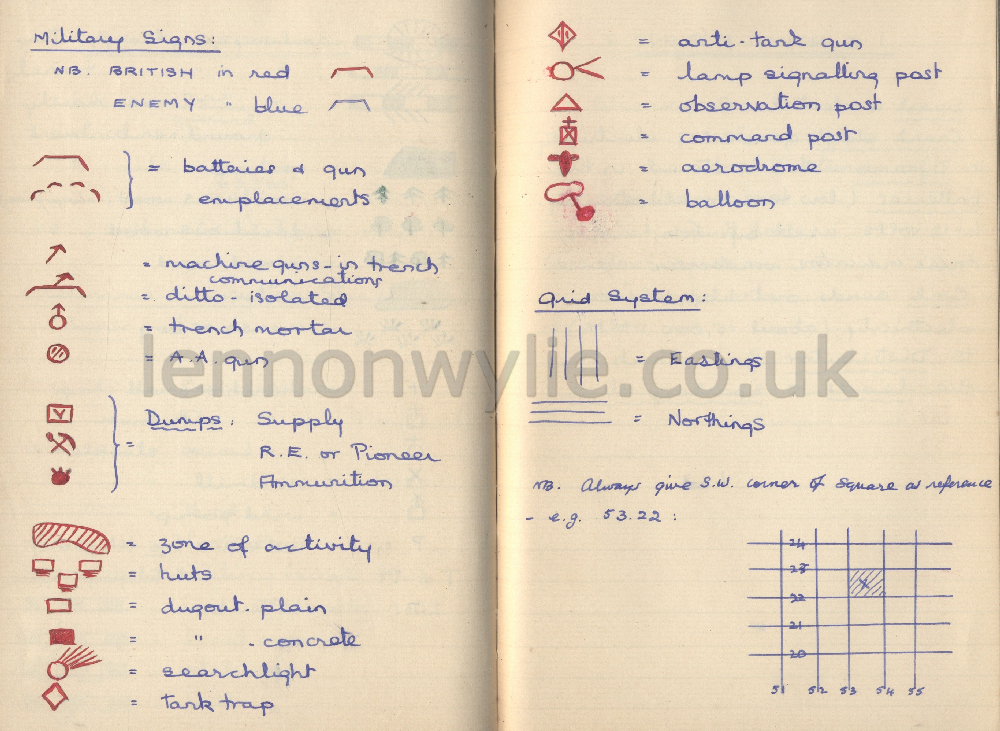 Military Signs:
NB. BRITISH in red
ENEMY " blue
= batteries & gun
emplacements
= machine guns - in trench
communications
= ditto - isolated
= trench mortar
= A.A. gun
Dumps: Supply
= R.E. or Pioneer
Ammunition
= zone of activity
= huts
= dugout. plain
= " . concrete
= searchlight
= tank trap
= anti-tank gun
= lamp signalling post
= observation post
= command post
= aerodrome
= balloon
Grid System:
= Eastings
= Northings
NB. Always give S.W. corner of square as reference
- e.g. 53.22:
24
23
22
21
20
51 52 53 54 55
lennonwylie.co.uk